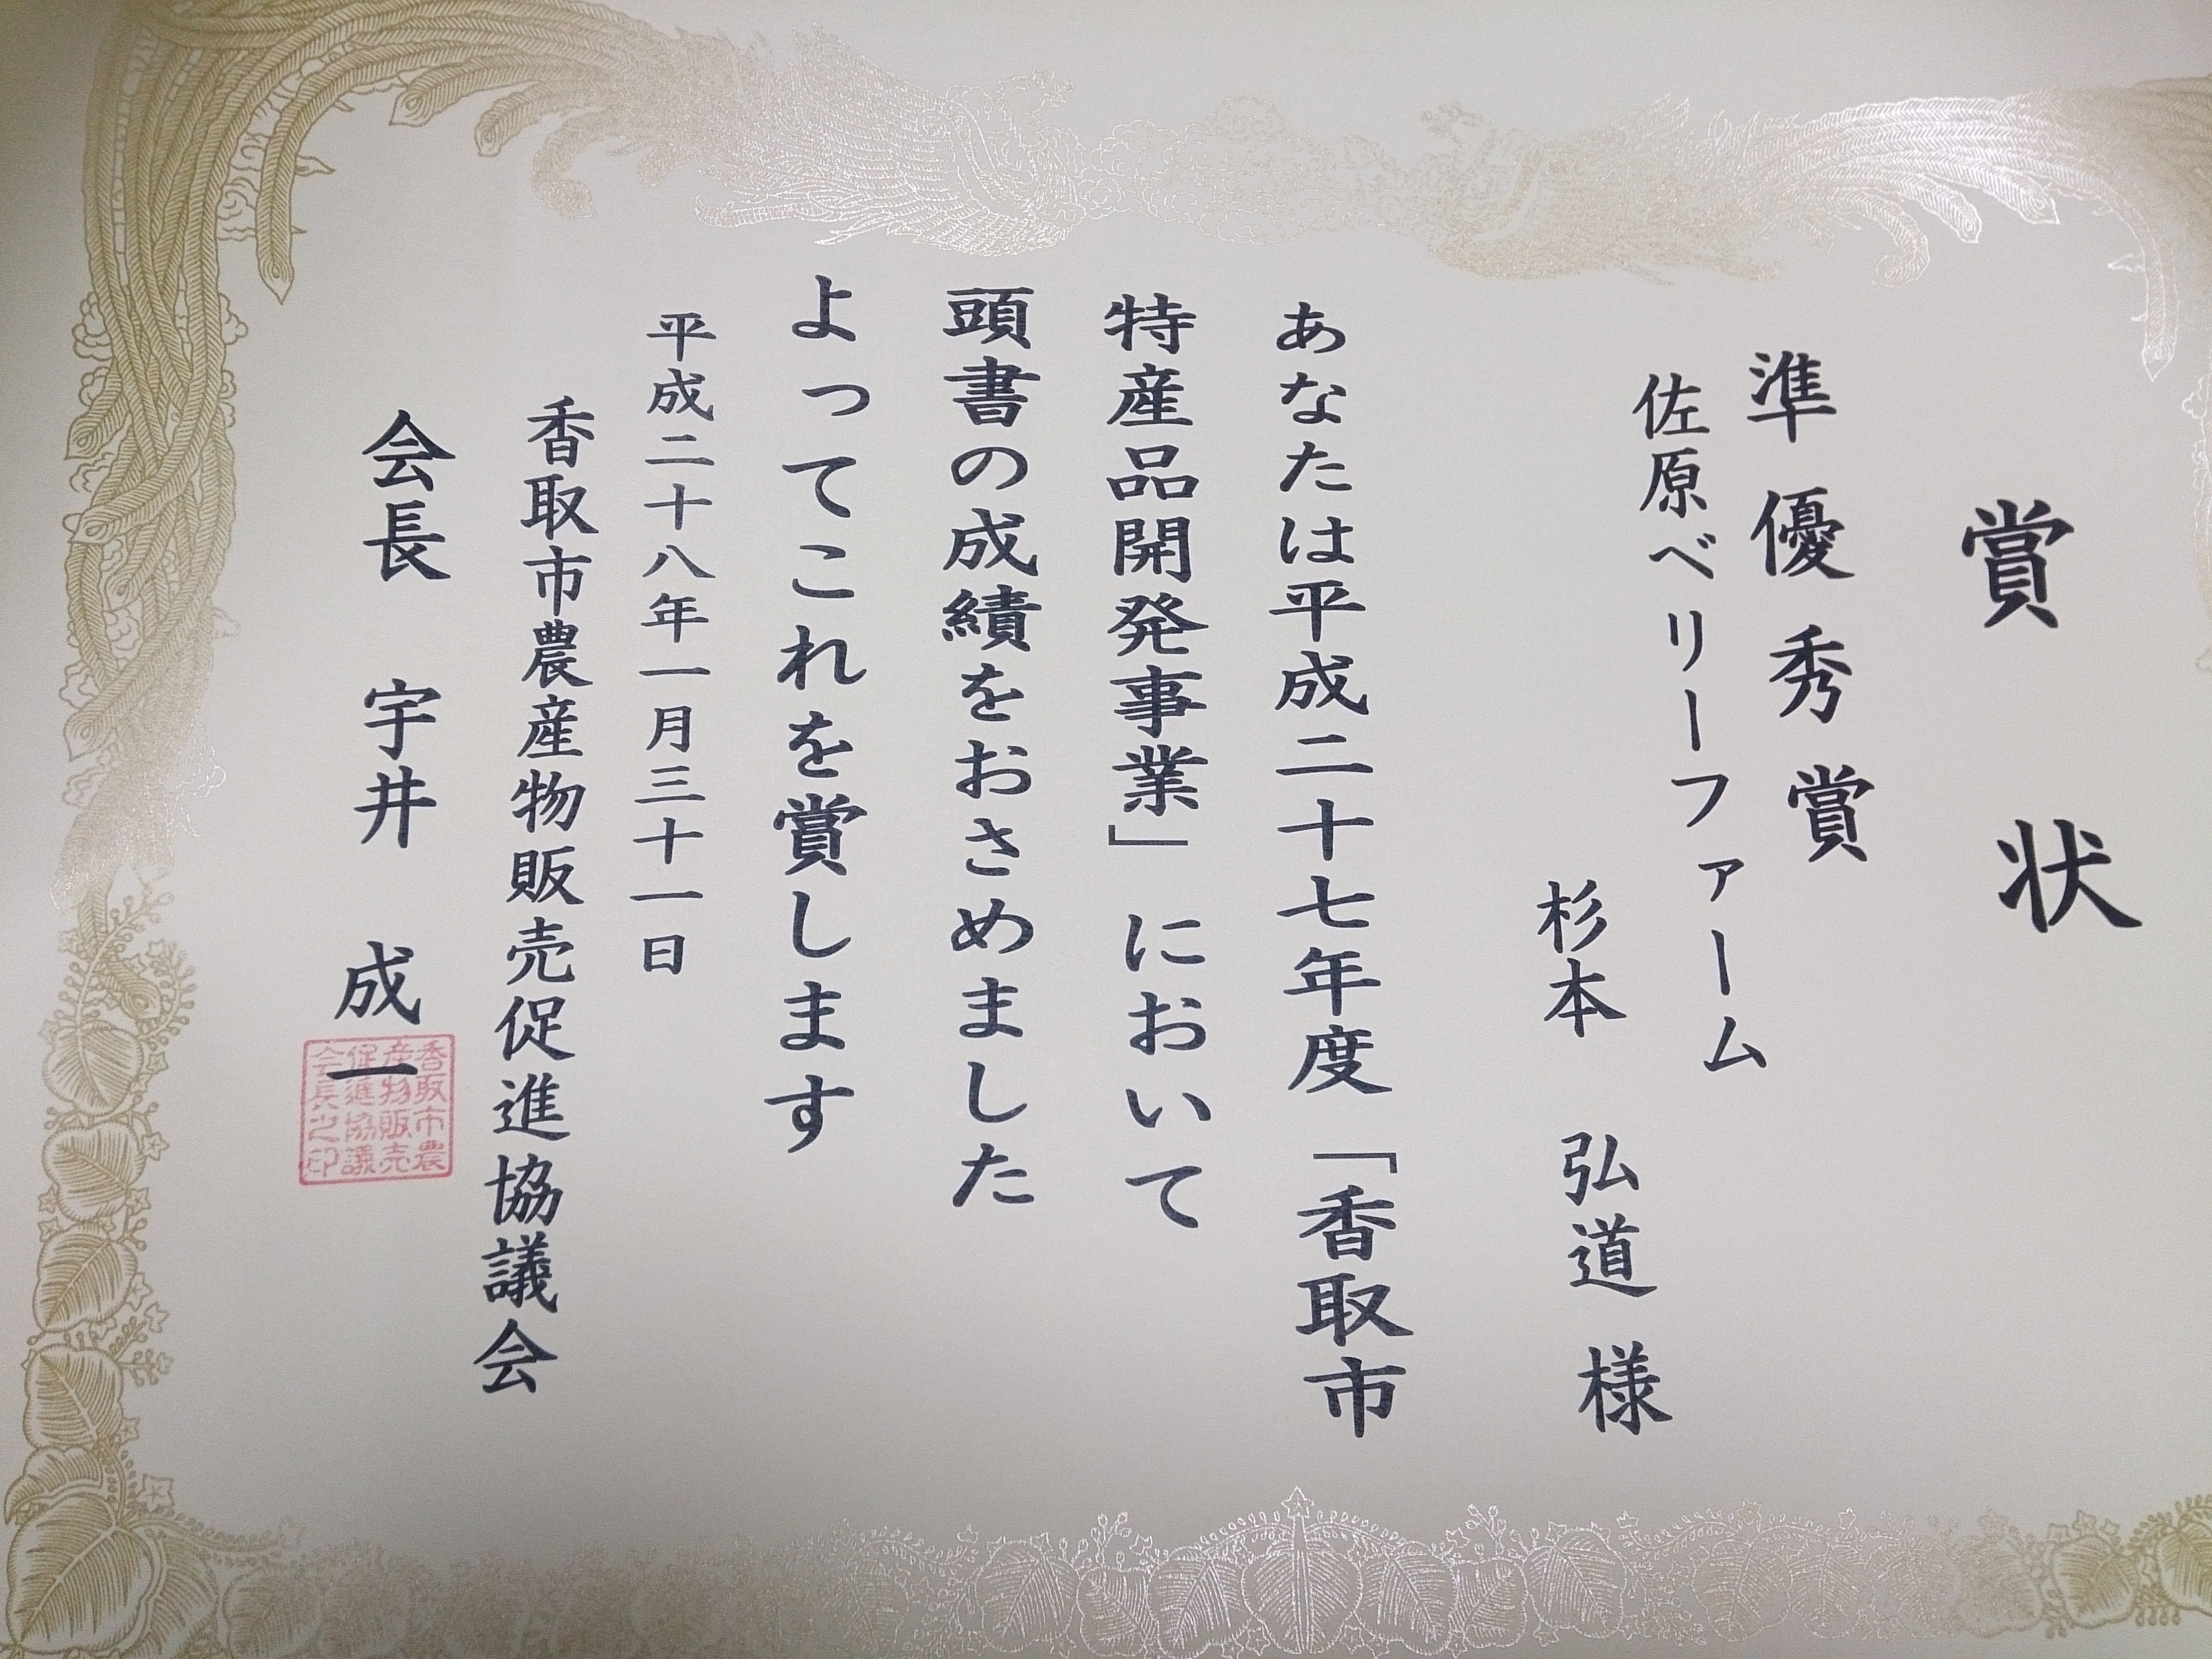 賞状
準優秀賞
佐原ベリーファーム
杉本 弘道 様
あなたは平成二十七年度「香取市
特産品開発事業」において
頭書の成績をおさめました
よってこれを賞します
平成二十八年一月三十一日
香取市農産物販売促進協議会
会長 宇井 成一
香取市農
産物販売
促進協議
会長之印